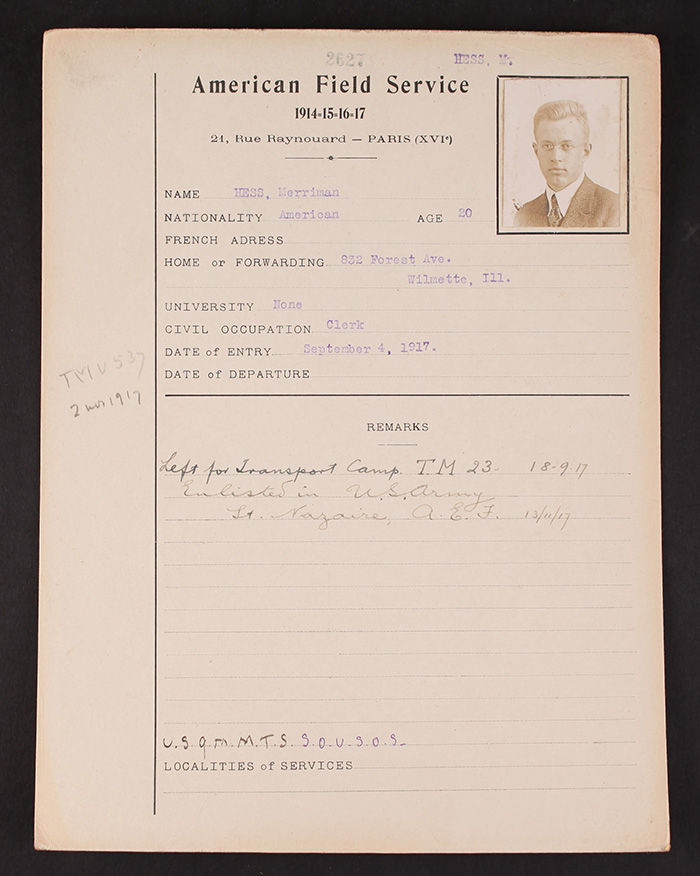 2627
HESS, M.
American Field Service
1914=15=16=17
21, Rue Raynouard — PARIS (XVIe)
NAME HESS, Merriman
NATIONALITY American AGE 20
FRENCH ADRESS
HOME or FORWARDING 832 Forest Ave.
Wilmette, Ill.
UNIVERSITY None
CIVIL OCCUPATION Clerk
DATE of ENTRY September 4, 1917.
DATE of DEPARTURE
TMU 537
2 nov 1917
REMARKS
Left for Transport Camp. T.M 23- 18-9-17
Enlisted in U.S. Army
St. Nazaire, A.E.F. 13/11/17
U.S.Q.M.M.T.S. S.O.U.S.O.S.
LOCALITIES of SERVICES